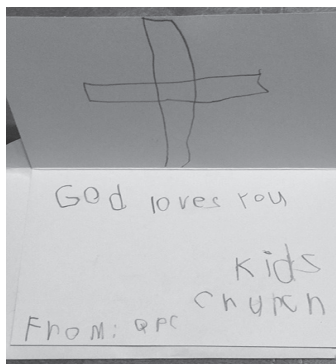 God loves you
Kids
Church
From: QPC